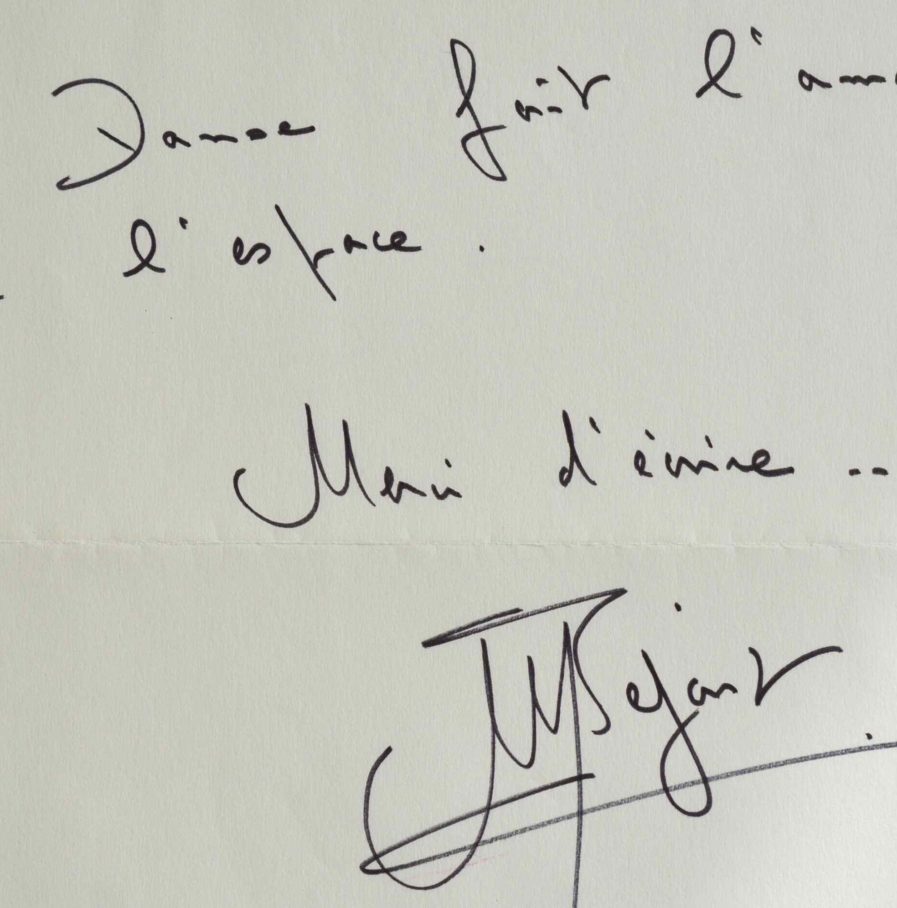 Danse fait l'am
l'espace.
Merci d'écrire ..
MBejart